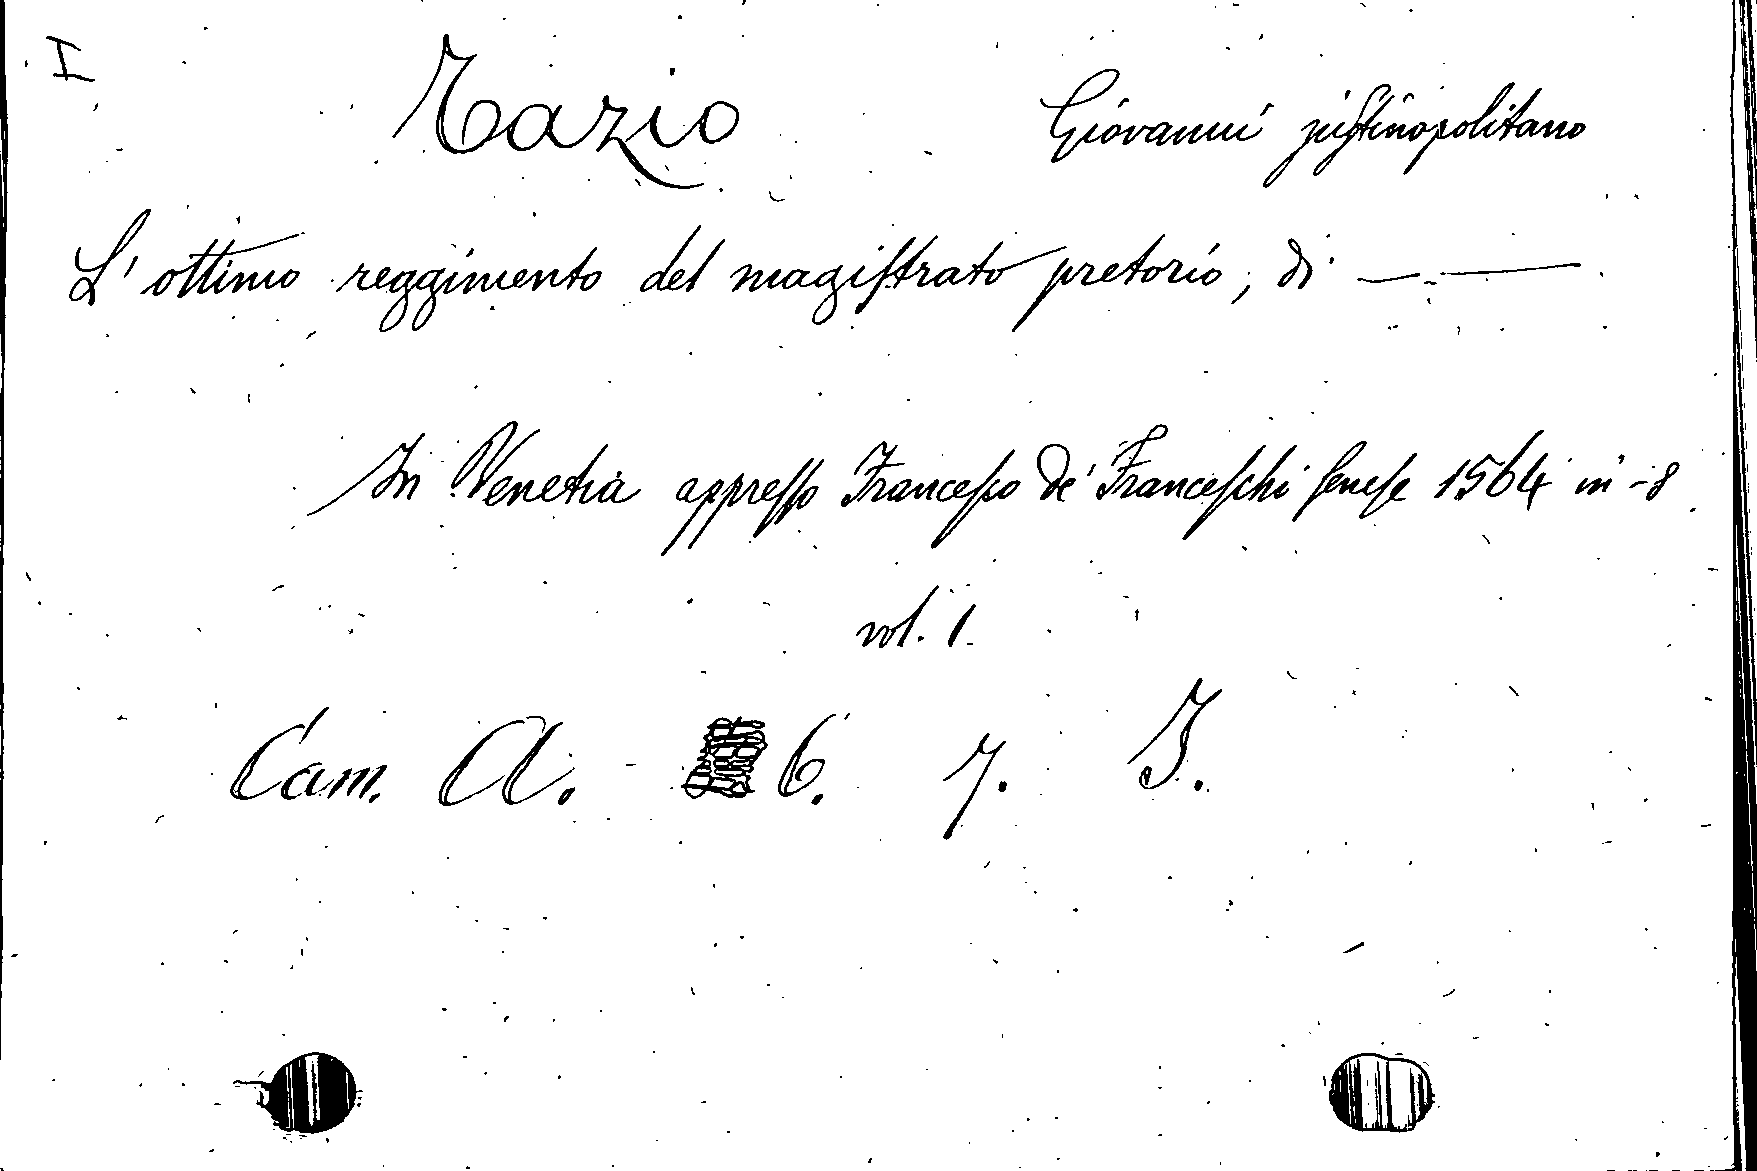 I
Tazio Giovanni justinopolitano
L'ottimo reggimento del magistrato pretorio, di — —
In Venetia appresso Francesco de' Franceschi senese 1564 in-8
vol. 1.
Cam. A. 6. 7. I.